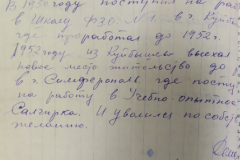 В 1950 году поступил на раб
в Школу Ф.З.О. №1. в г. Куйб
где проработал до 1952г.
1952 году из Куйбышева выехал
новое место жительство до
в г. Симферополь где посту
на работу в Учебно-опытное
Салгирка. И уволился по собс
желанию.